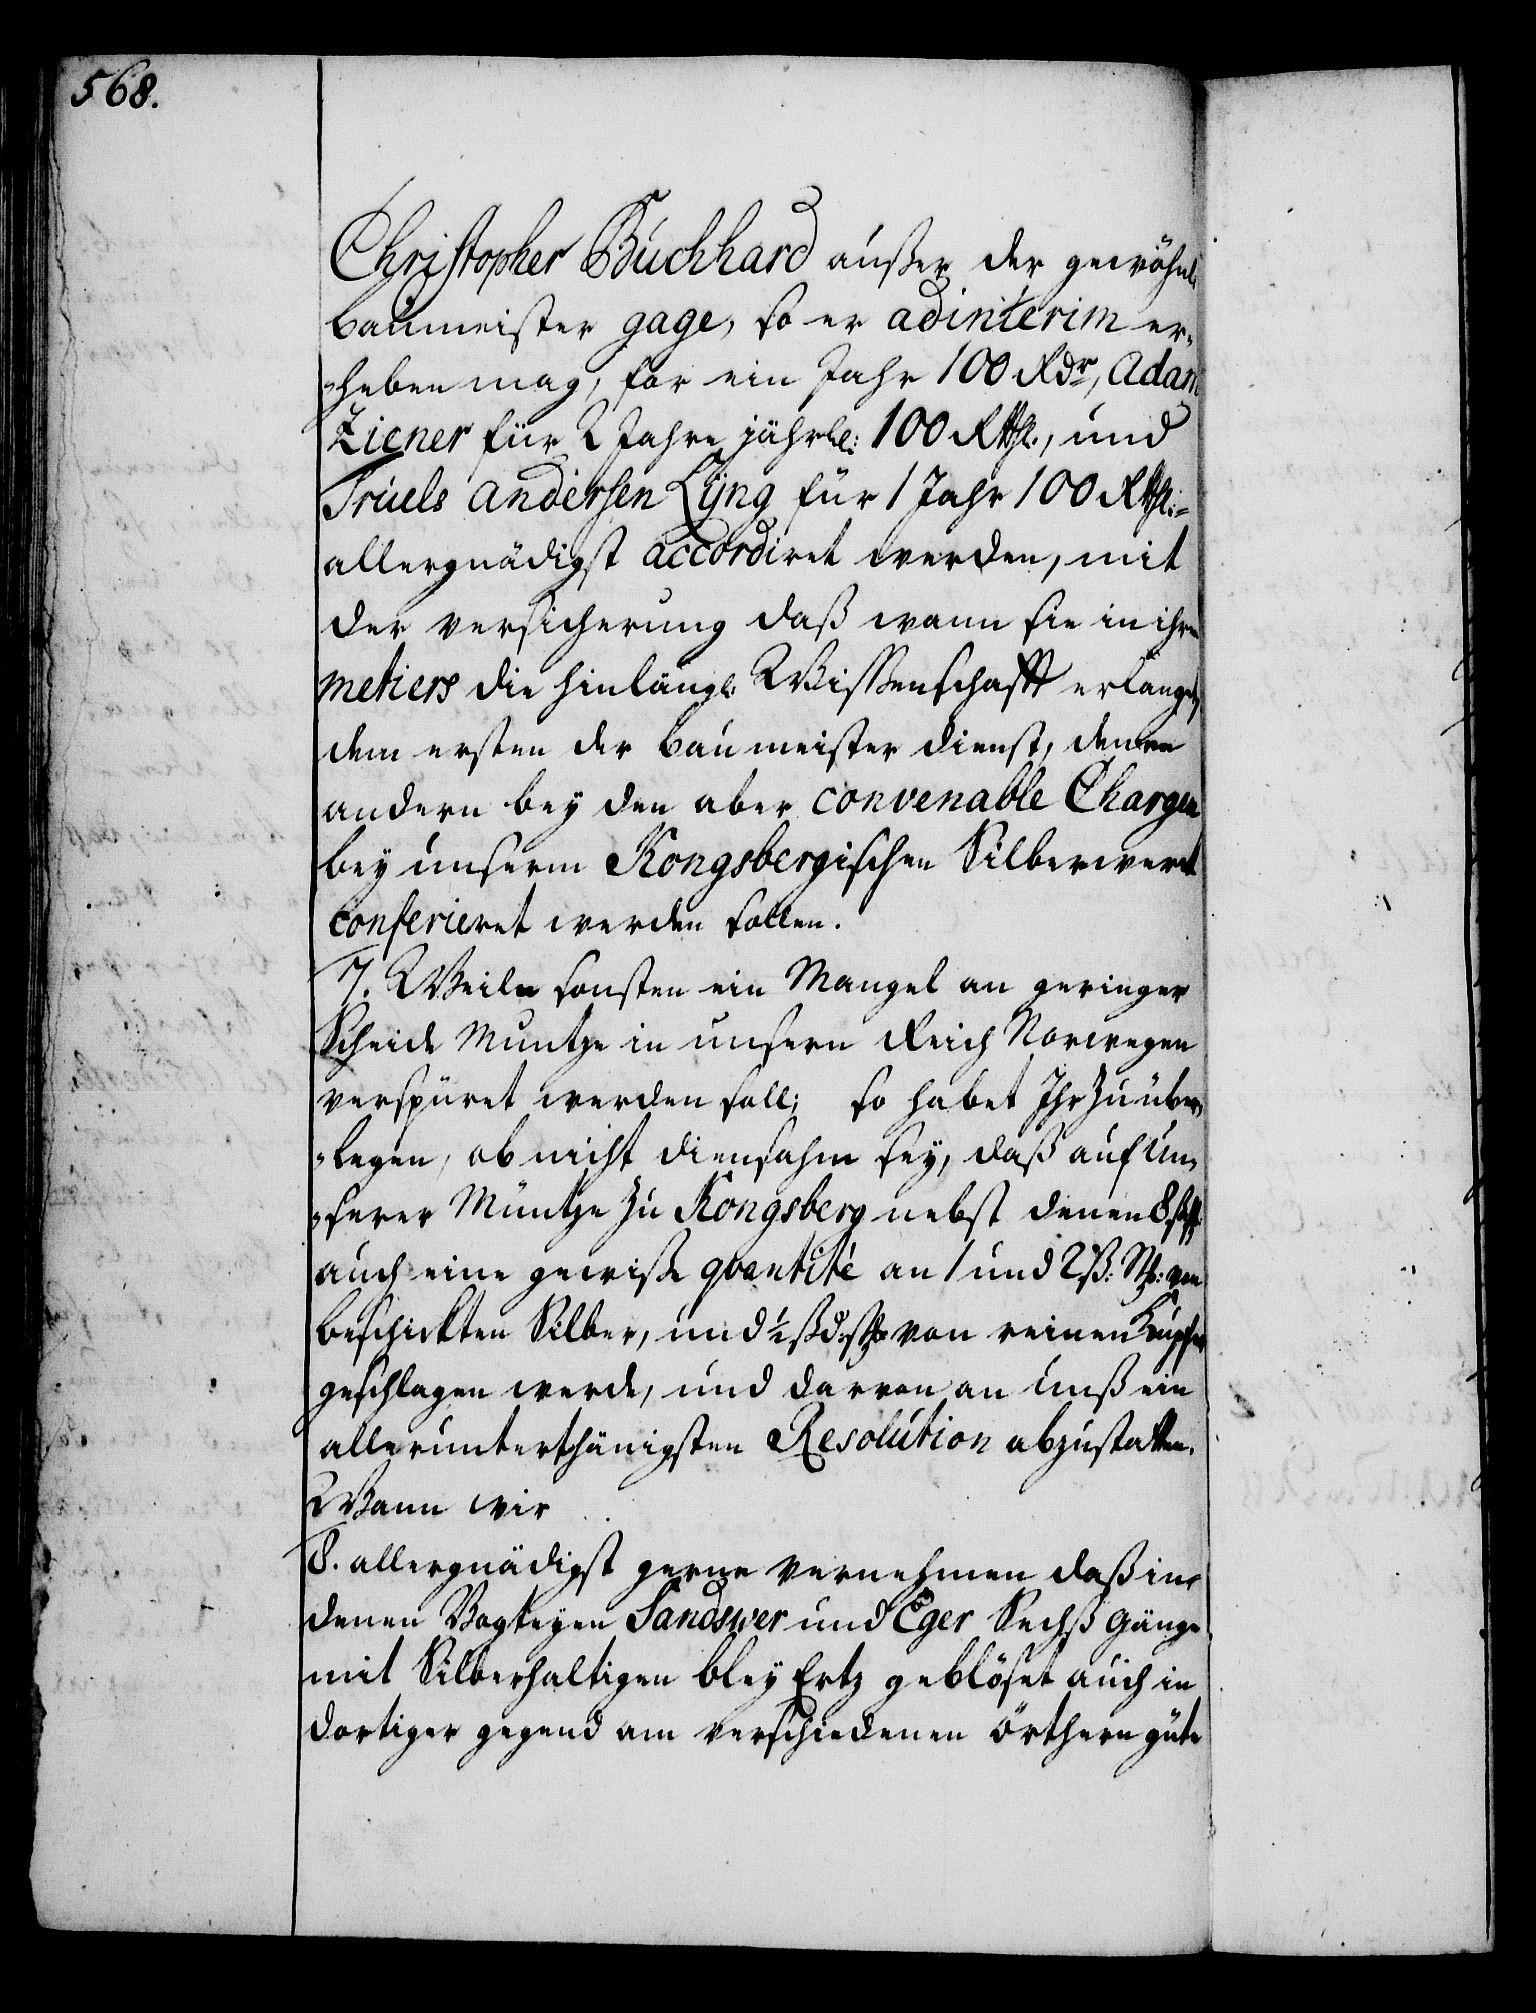 568.
Christopher Buchhard außer der gewöhnl:
baumeister gage, so er adinterim er-
-heben mag, for ein Jahr 100 Rdr, Adam
Ziener für 2 Jahre jährl: 100 Rthl., und
Truels Andersen Lyng für 1 Jahr 100 Rthl:
allergnädigst accordiret werden, mit
der versicherung daß wann sie in ihren
metiers die hinlängl: Wißenschafft erlanget,
dem ersten der baumeister dienst, denen
andern bey den aber convenable Chargen
bey unserm Kongsbergischen Silberwerck
conferieret werden sollen.
7. Weiln sonsten ein Mangel an geringer
Scheide Muntze in unsern Reich Norwegen
verspüret werden soll; so habet Ihr zu über-
-legen, ob nicht diensahm sey, daß auf un-
-serer Müntze zu Kongsberg nebst denen 8
auch eine gewiße qvantité an 1 und 2 ß: Stk: von
beschickten Silber, und ½ ß von reinen Kupfer
geschlagen werde, und darvon an unß ein
allerunterthänigsten Resolution abzustatten.
Wann wir
8. allergnädigst gerne vernehmen daß in
denen Vogteyen Sandswer und Eger Sechß Gänge
mit Silberhaltigen bley Ertz geblöset auch in
dortiger gegend am verschiedenen örthern gute